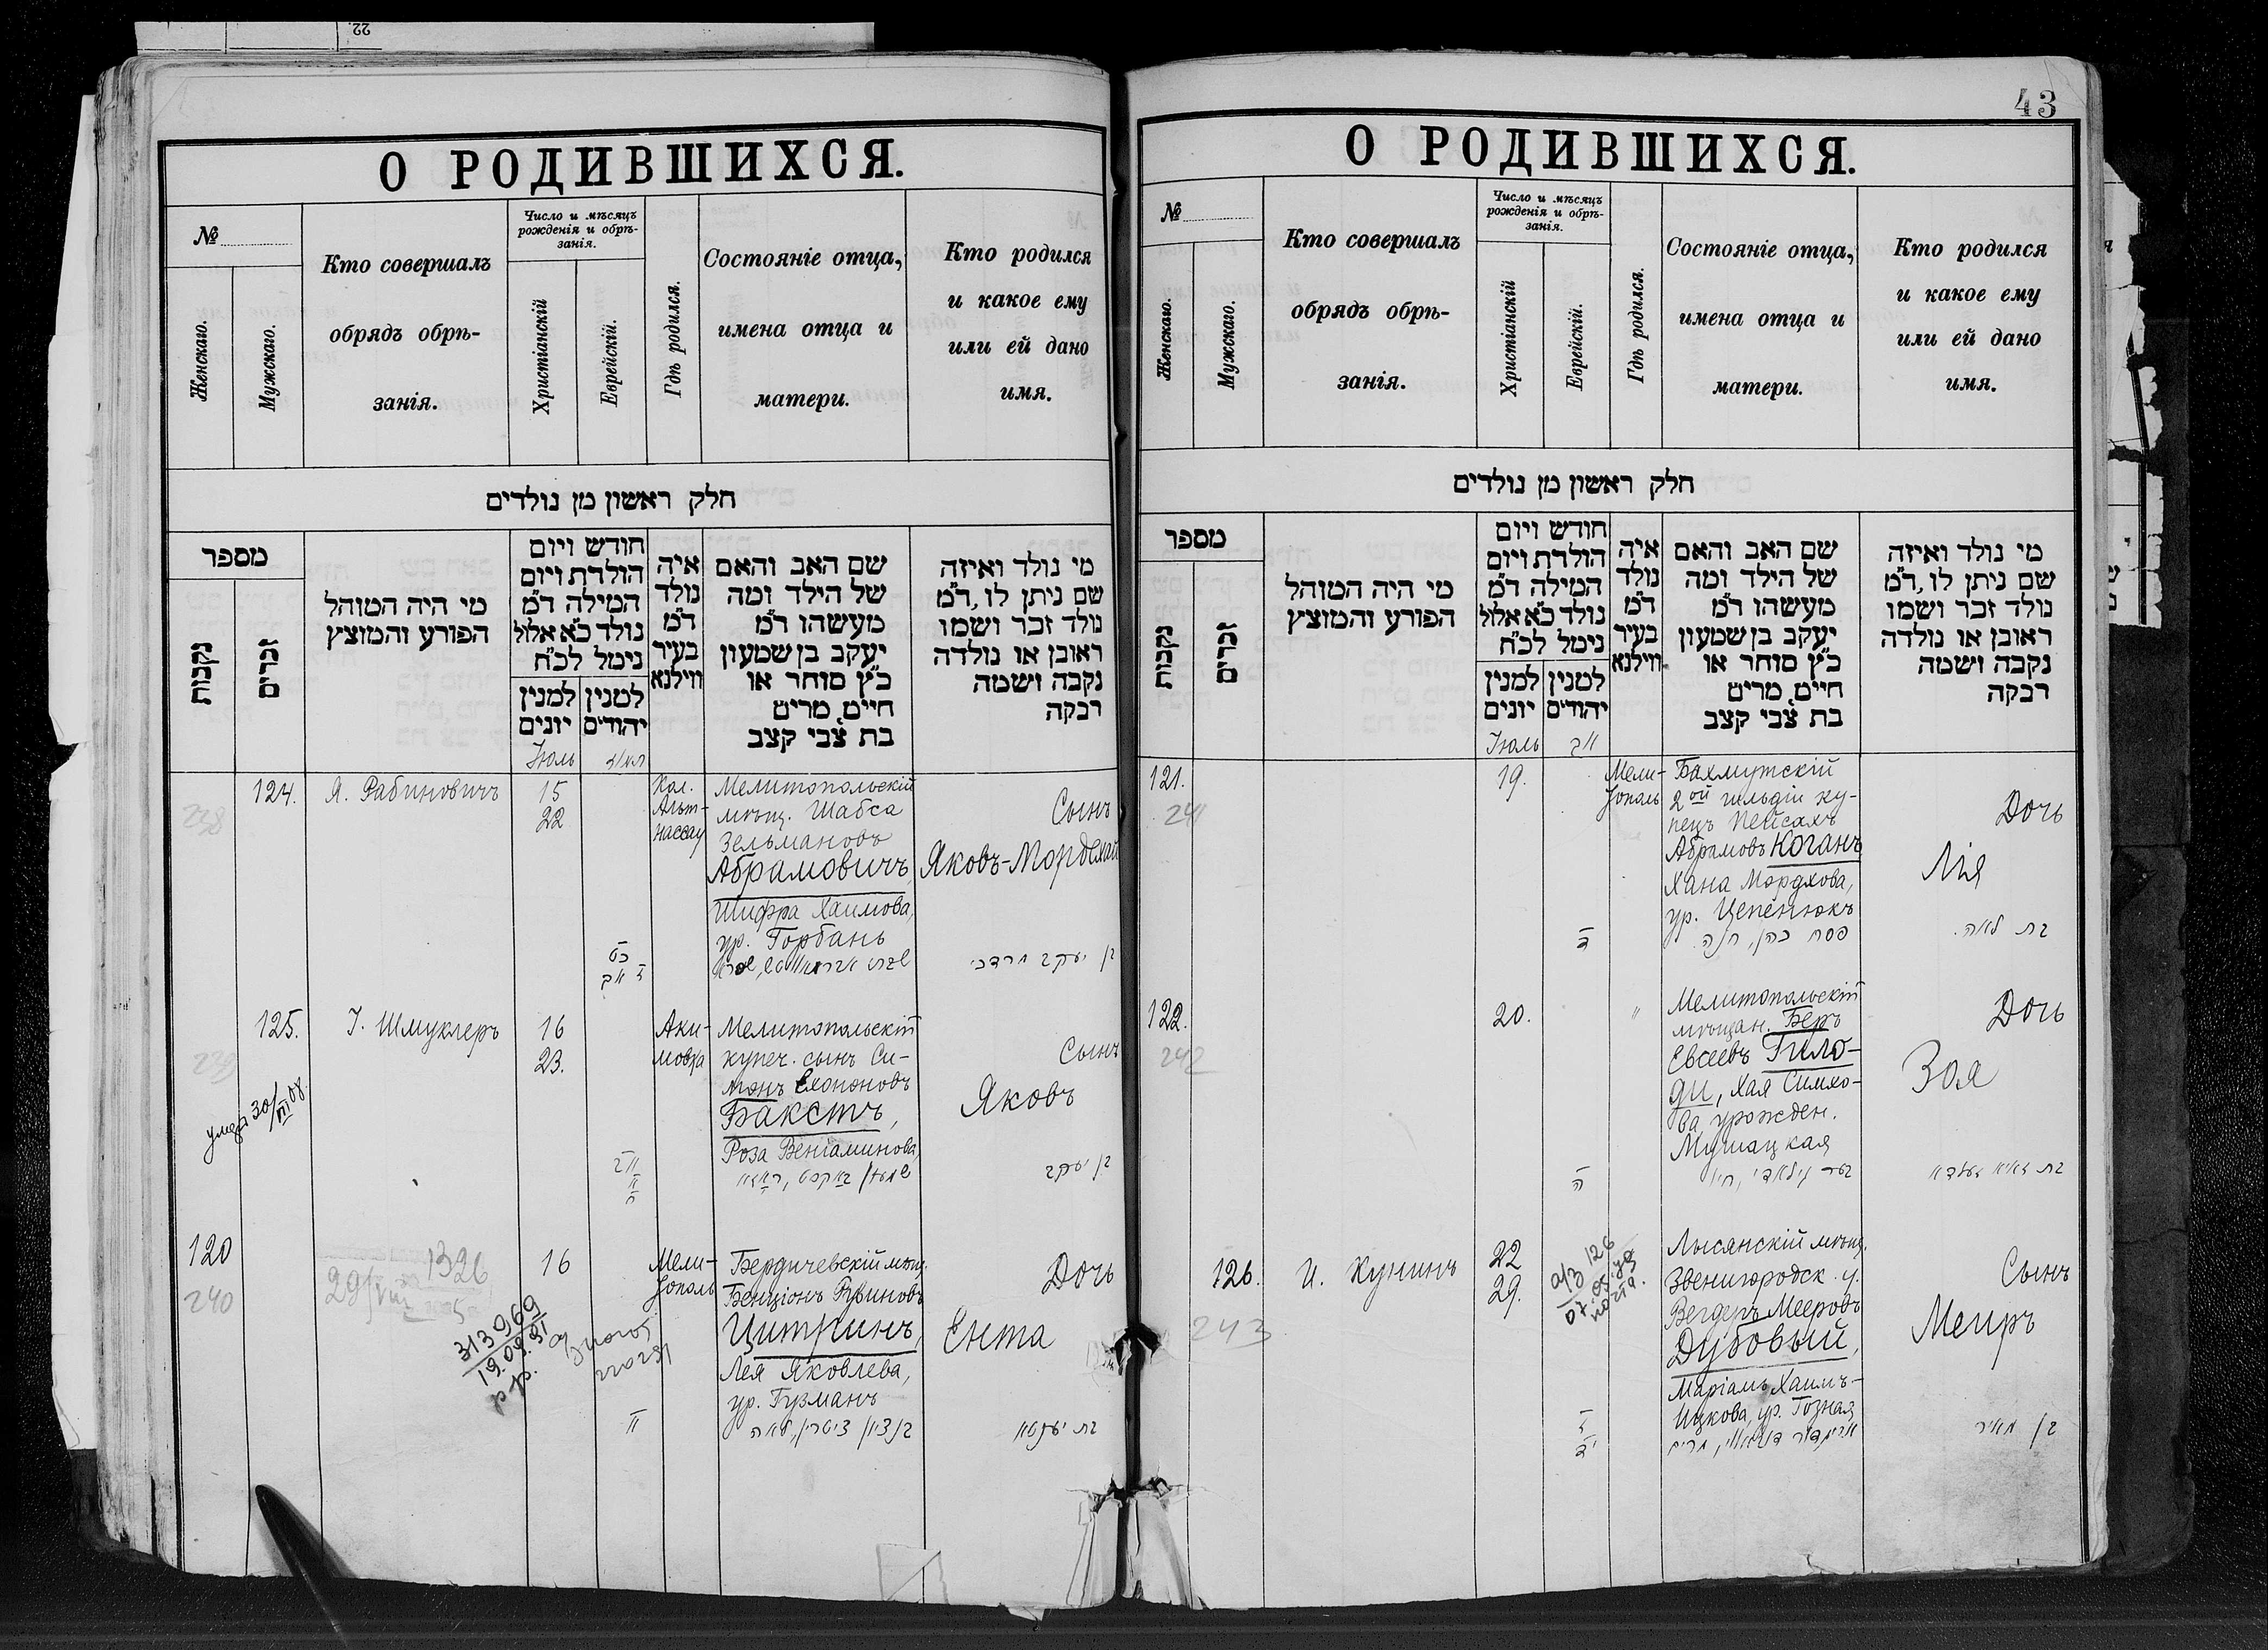 22
О РОДИВШИХСЯ.
№
Женскаго.
Мужскаго.
Кто совершалъ
обрядъ обрѣ-
занія.
Число и мѣсяцъ
рожденія и обрѣ-
занія.
Христіанскій
Еврейскій.
Гдѣ родился.
Состояніе отца,
имена отца и
матери.
Кто родился
и какое ему
или ей дано
имя.
חלק ראשון מן נולדים
מספר
נקבות
זכרים
מי היה המוהל
הפורע והמוצץ
חודש ויום
הולדת ויום
המילה ד״מ
נולד כ״א אלול
נימל לכ״ח
למנין
יונים
למנין
יהודים
איה
נולד
ד״מ
בעיר
ווילנא
שם האב והאם
של הילד ומה
מעשהו ד״מ
יעקב בן שמעון
כ״ץ סוחר או
חיים, מרים
בת צבי קצב
מי נולד ואיזה
שם ניתן לו, ד״מ
נולד זכר ושמו
ראובן או נולדה
נקבה ושמה
רבקה
Іюль
124.
238
Я. Рабиновичъ
15
22
Кол.
Альт-
нассау
Мелитопольскій
мѣщ. Шабса
Зельмановъ
Абрамовичъ,
Шифра Хаимова,
ур. Горбань
Сынъ
Яковъ-Мордехай
כט
ז אב
בן יעקב מרדכי
125.
239
І. Шмуклеръ
16
23.
Аки-
мовка
Мелитопольскій
купеч. сынъ Си-
монъ Ехононовъ
Бакстъ,
Роза Веніаминова
Сынъ
Яковъ
בן יעקב
120
240
1326
16
Мели-
тополь
Бердичевскій мѣщ.
Бенціонъ Рувиновъ
Цитринъ,
Лея Яковлева,
ур. Гузманъ
בן ציון ציטרין, לאה
Дочь
Ента
בת יענטא
313969
19.09.91
43
О РОДИВШИХСЯ.
№
Женскаго.
Мужскаго.
Кто совершалъ
обрядъ обрѣ-
занія.
Число и мѣсяцъ
рожденія и обрѣ-
занія.
Христіанскій
Еврейскій.
Гдѣ родился.
Состояніе отца,
имена отца и
матери.
Кто родился
и какое ему
или ей дано
имя.
חלק ראשון מן נולדים
מספר
נקבות
זכרים
מי היה המוהל
הפורע והמוצץ
חודש ויום
הולדת ויום
המילה ד״מ
נולד כ״א אלול
נימל לכ״ח
למנין
יונים
למנין
יהודים
איה
נולד
ד״מ
בעיר
ווילנא
שם האב והאם
של הילד ומה
מעשהו ד״מ
יעקב בן שמעון
כ״ץ סוחר או
חיים, מרים
בת צבי קצב
מי נולד ואיזה
שם ניתן לו, ד״מ
נולד זכר ושמו
ראובן או נולדה
נקבה ושמה
רבקה
Іюль
אב
121.
241
19.
Мели-
тополь
Бахмутскій
2ой гильдіи ку-
пецъ Пейсахъ
Абрамовъ Коганъ
Хана Мордхова,
ур. Цепенюкъ
פסח כהן, חנה
Дочь
Лія
בת לאה.
ד
122.
242
20.
"
Мелитопольскій
мѣщан. Беръ
Евсеевъ Гило-
ди, Хая Симхо-
ва урожден.
Мушацкая
Дочь
Зоя
ה
126.
243
И. Кунинъ
22
29.
Лысянскій мѣщ.
Звенигородск. у.
Вегдеръ Мееровъ
Дубовый,
Маріамъ Хаимъ-
Ицкова, ур. Гозная
Сынъ
Меиръ
ז
יד
בן מאיר